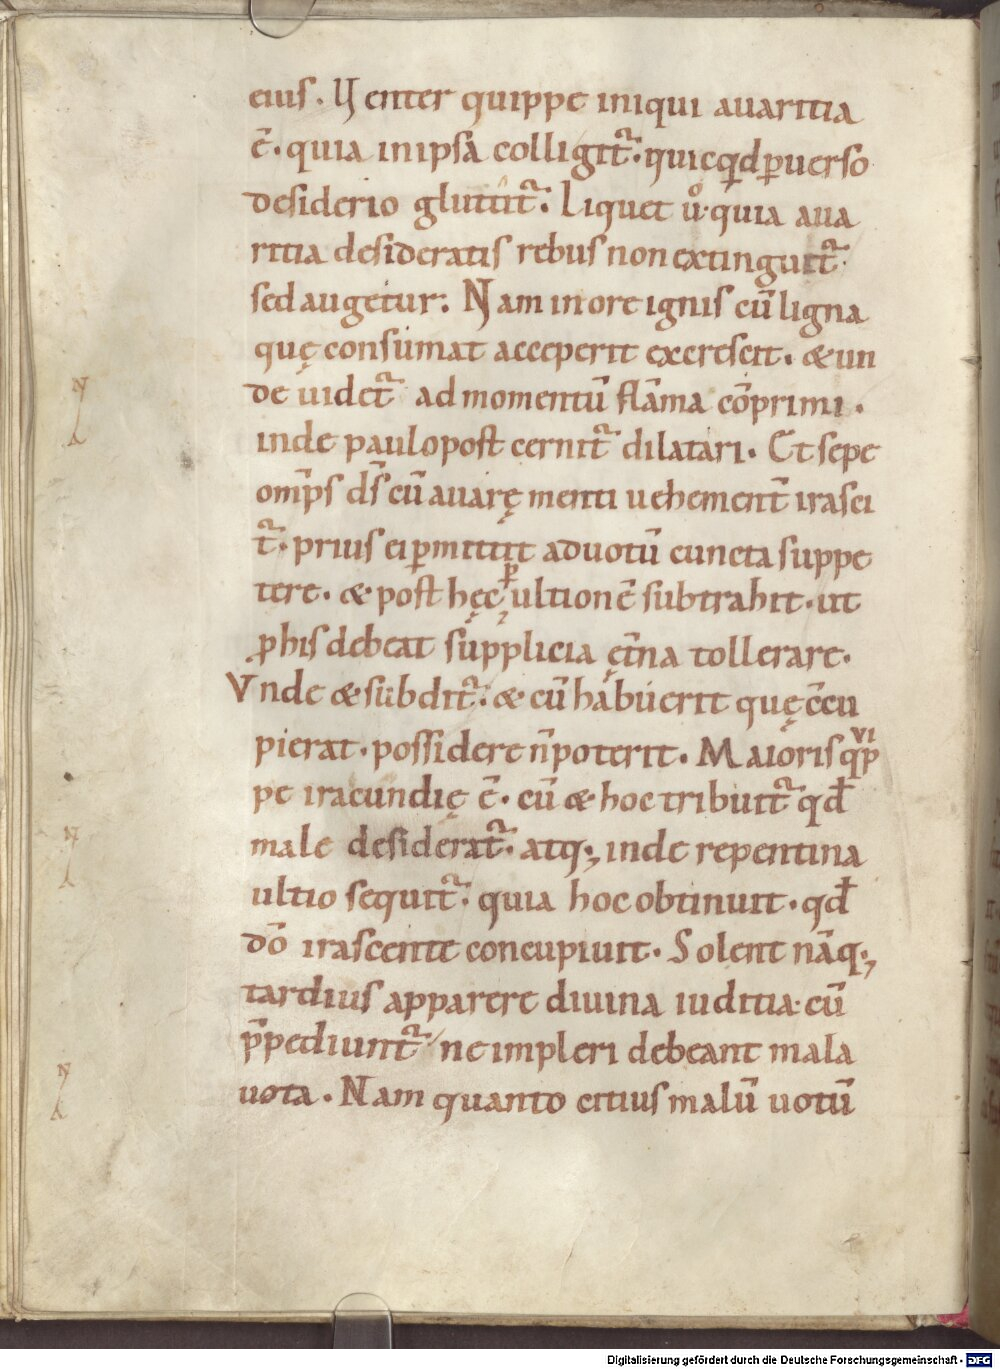 eius. Venter quippe iniqui auaritia
ē. quia in ipsā colligit᷑. quicqd ꝑuerso
desiderio glutit᷑. Liquet ůo quia aua
ritia desideratis rebus non extinguit᷑.
sed augetur. Nam in ore ignis cū ligna
quę consumat acceperit excrescit. & un
de uidet᷑ ad momentū flāma cōprimi.
inde paulopost cernit᷑ dilatari. Et sepe
omp̄s ds̄ cū auarę menti uehement̄ irasci
t᷑. prius ei ꝑmittit ad uotū cuncta suppe
tere. & post hęc ꝑ ultionē subtrahit. ut
ꝓ his debeat supplicia ęt̄na tollerare.
Vnde & subdit᷑. & cū habuerit quę c̄cu
pierat. possidere n̄ poterit. Maioris qp̄
pe iracundię ē. cū & hoc tribuit᷑ qđ
male desiderat᷑. atq; inde repentina
ultio sequit᷑. quia hoc obtinuit. qđ
dō irascente concupiuit. Solent nāq;
tardius apparere diuina iuditia. cū
p̄pediunt᷑ ne impleri debeant mala
uota. Nam quanto citius malū uotū
Digitalisierung gefördert durch die Deutsche Forschungsgemeinschaft - DFG